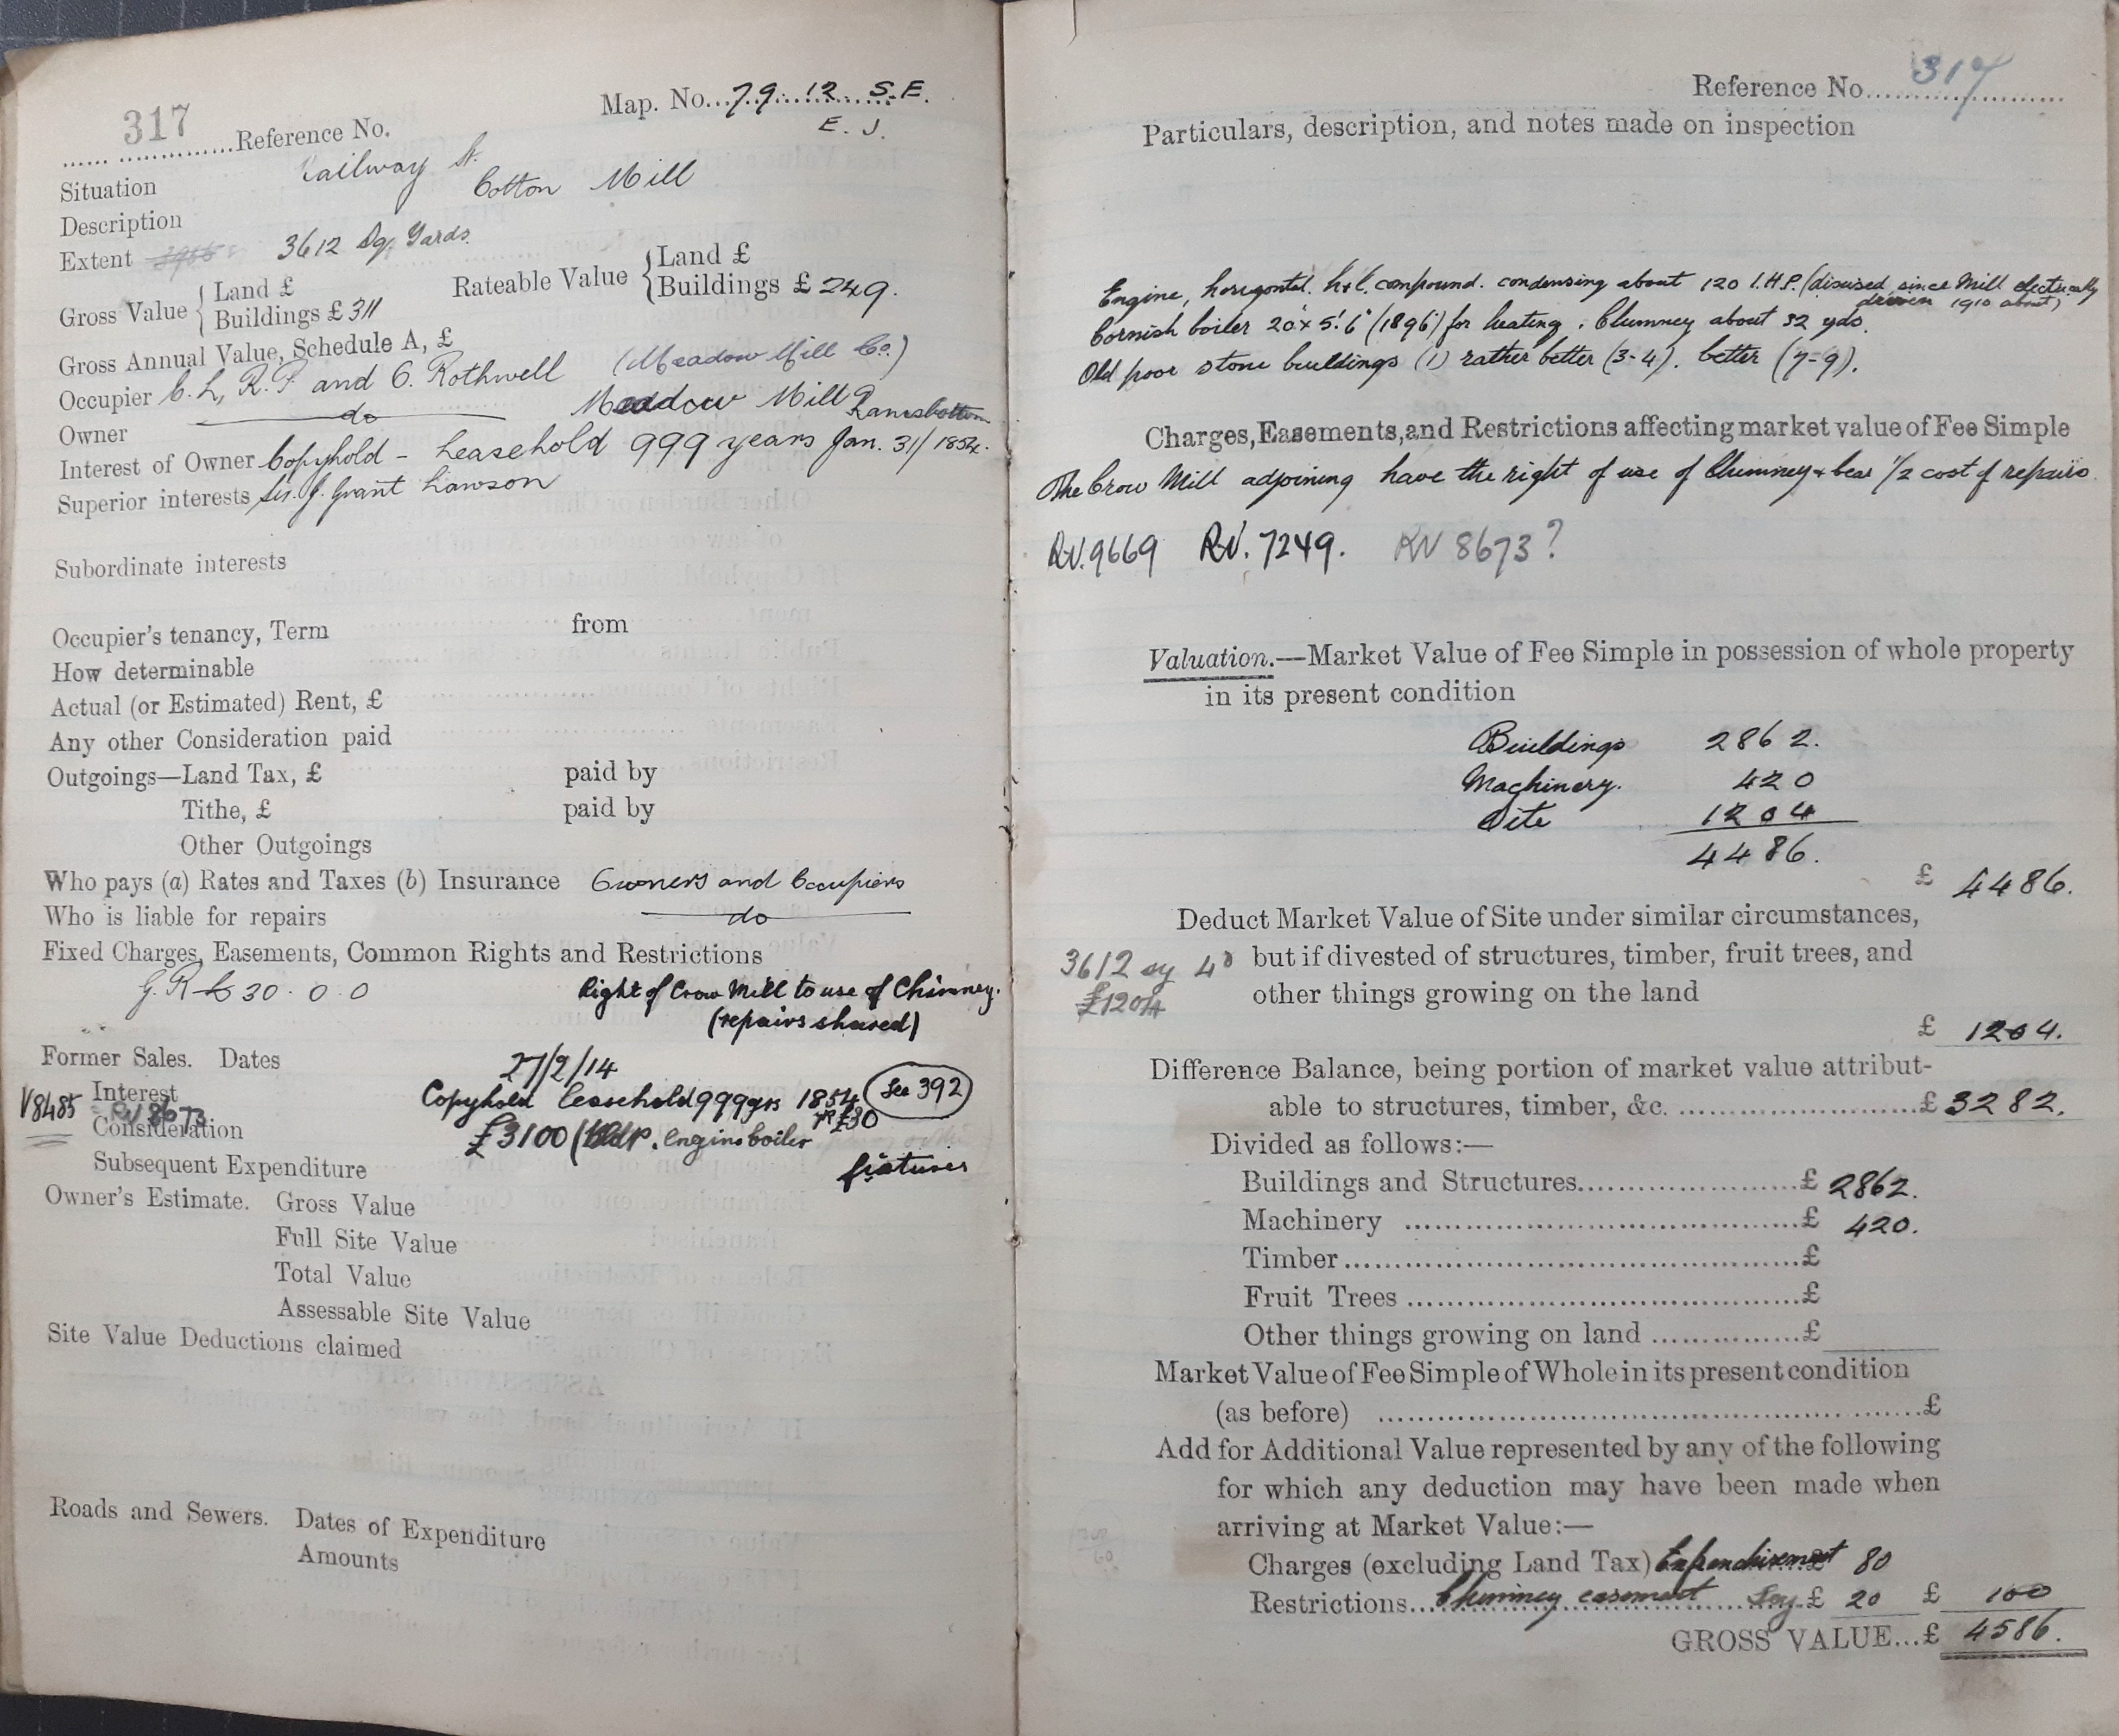 317
Map. No. 79. 12 S.E.
E. J.
Reference No.
Situation Railway St.
Description Cotton Mill
Extent 3612 Sq. Yards.
Gross Value { Land £
Buildings £ 311
Rateable Value { Land £
Buildings £ 249.
Gross Annual Value, Schedule A, £
Occupier C. L, R. P and O. Rothwell (Meadow Mill Co.)
Owner do Meadow Mill Ramsbottom
Interest of Owner Copyhold - Leasehold 999 years Jan. 31/1854.
Superior interests Sir. J. Grant Lawson
Subordinate interests
Occupier's tenancy, Term from
How determinable
Actual (or Estimated) Rent, £
Any other Consideration paid
Outgoings—Land Tax, £ paid by
Tithe, £ paid by
Other Outgoings
Who pays (a) Rates and Taxes (b) Insurance Owners and Occupiers
Who is liable for repairs do
Fixed Charges, Easements, Common Rights and Restrictions
G. R £ 30. 0. 0 Right of Crow Mill to use of Chimney.
(repairs shared)
Former Sales. Dates 27/2/14
Interest Copyhold leasehold 999 yrs 1854 See 392
V8485 RV 8673 GR £30
Consideration £3100 ( engine boiler
fixtures
Subsequent Expenditure
Owner's Estimate. Gross Value
Full Site Value
Total Value
Assessable Site Value
Site Value Deductions claimed
Roads and Sewers. Dates of Expenditure
Amounts
Reference No. 317
Particulars, description, and notes made on inspection
Engine, horizontal. h & l. compound. condensing about 120 I.H.P. (disused since Mill electrically
driven 1910 about)
Cornish boiler 20' x 5'. 6" (1896) for heating. Chimney about 32 yds.
Old poor stone buildings (1) rather better (3-4). better (7-9).
Charges, Easements, and Restrictions affecting market value of Fee Simple
The Crow Mill adjoining have the right of use of Chimney & bear 1/2 cost of repairs.
RV. 9669 RV. 7249. RV 8673?
Valuation.—Market Value of Fee Simple in possession of whole property
in its present condition
Buildings 2862.
Machinery. 420
Site 1204
4486.
£ 4486.
Deduct Market Value of Site under similar circumstances,
3612 sy 4d but if divested of structures, timber, fruit trees, and
£1204 other things growing on the land
£ 1204.
Difference Balance, being portion of market value attribut-
able to structures, timber, &c. £ 3282.
Divided as follows:—
Buildings and Structures £ 2862.
Machinery £ 420.
Timber £
Fruit Trees £
Other things growing on land £
Market Value of Fee Simple of Whole in its present condition
(as before) £
Add for Additional Value represented by any of the following
for which any deduction may have been made when
arriving at Market Value:—
Charges (excluding Land Tax) Enfranchisement 80
Restrictions Chimney easement say £ 20 £ 100
GROSS VALUE...£ 4586.